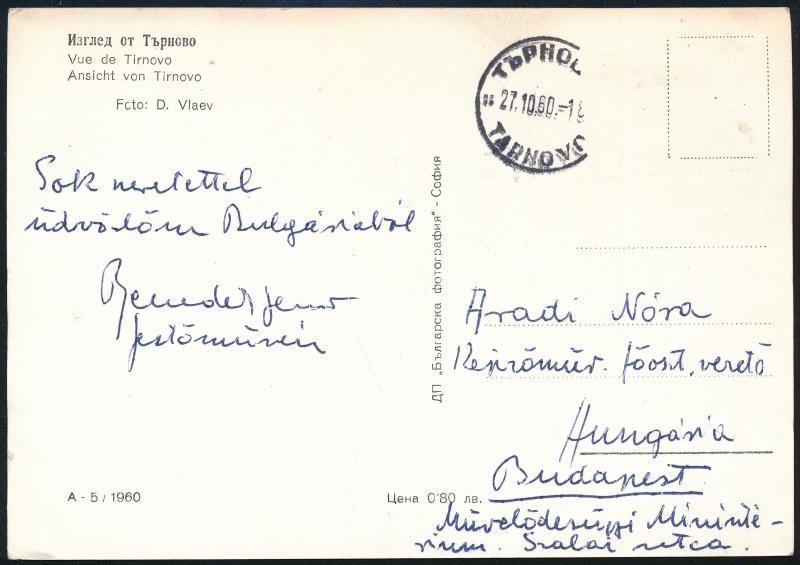 Изглед от Търново
Vue de Tirnovo
Ansicht von Tirnovo
Foto: D. Vlaev
ТЪРНОВ
27.10.60.-18
TARNOVO
Sok szeretettel
üdvözlöm Bulgáriából
Benedek Jenő
festőművész
ДП „Българска фотография" - София
Aradi Nóra
Képzőműv. főoszt. vezető
Hungária
Budapest
Művelődésügyi Miniszté-
rium. Szalai utca.
А - 5 / 1960
Цена 0'80 лв.